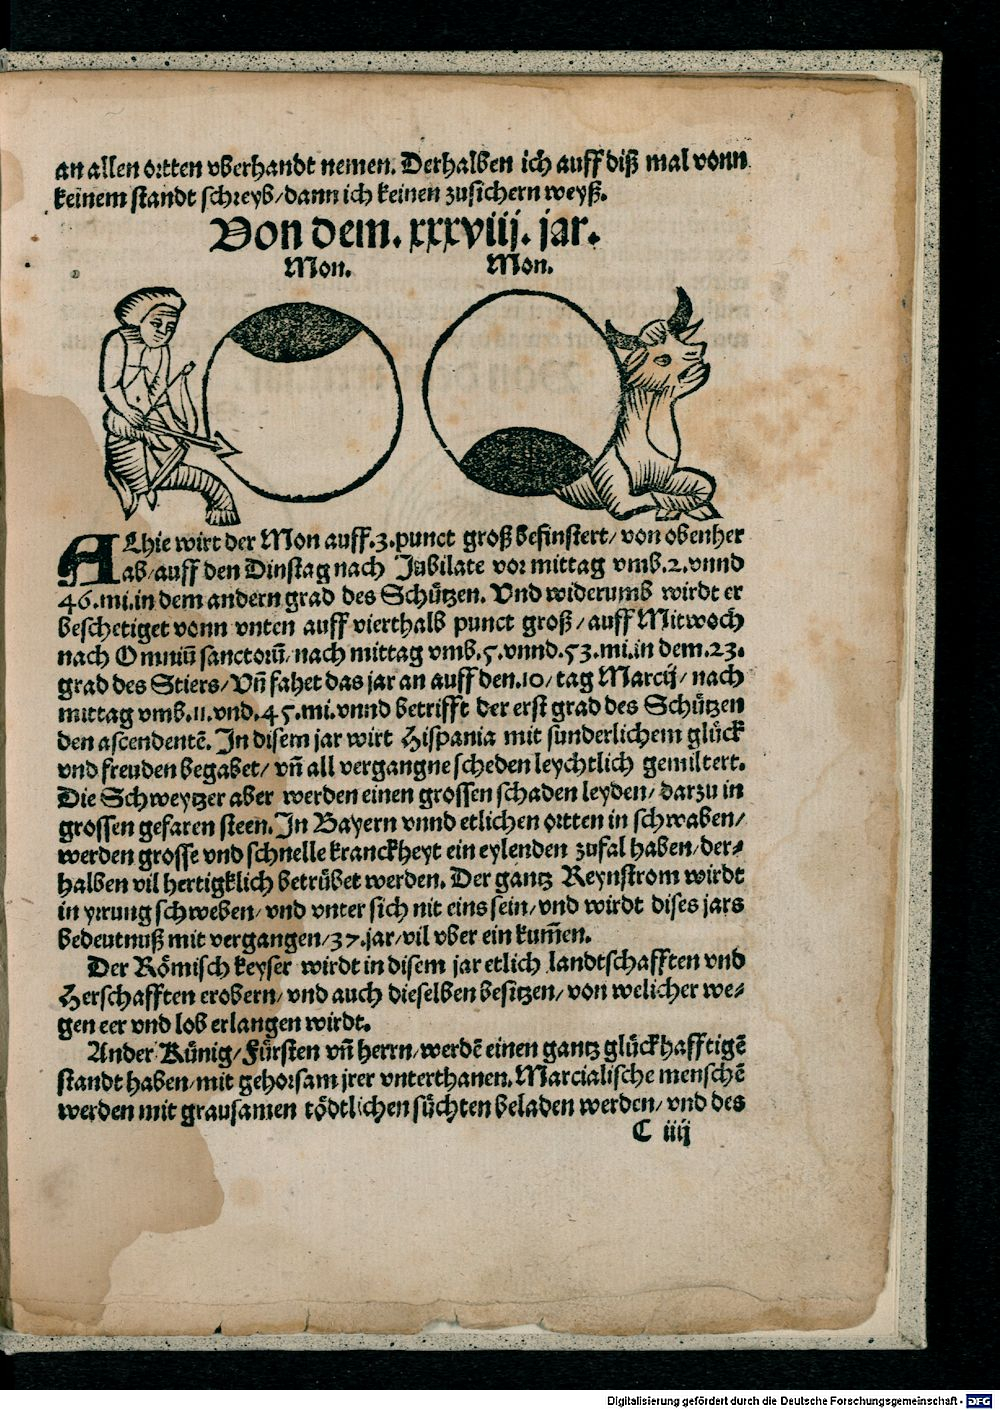 an allen ortten vberhandt nemen. Derhalben ich auff diß mal vonn
keinem standt schreyb/dann ich keinen zusichern weyß.
Von dem. xxxviij. jar.
Mon. Mon.
Alhie wirt der Mon auff.3.punct groß befinstert/von obenher
ab/auff den Dinstag nach Jubilate vor mittag vmb.2.vnnd
46.mi.in dem andern grad des Schützen. Vnd widerumb wirdt er
beschetiget vonn vnten auff vierthalb punct groß/auff Mitwoch
nach Omniū sanctorū/nach mittag vmb.5.vnnd.53.mi.in dem.23.
grad des Stiers/Vn̄ fahet das jar an auff den.10/tag Marcij/nach
mittag vmb.11.vnd.45.mi.vnnd betrifft der erst grad des Schützen
den ascendentē. In disem jar wirt Hispania mit sunderlichem glück
vnd freuden begabet/vn̄ all vergangne scheden leychtlich gemiltert.
Die Schweytzer aber werden einen grossen schaden leyden/darzu in
grossen gefaren steen. In Bayern vnnd etlichen ortten in schwaben/
werden grosse vnd schnelle kranckheyt ein eylenden zufal haben/der-
halben vil hertigklich betrübet werden. Der gantz Reynstrom wirdt
in yrrung schweben/vnd vnter sich nit eins sein/vnd wirdt dises jars
bedeutnuß mit vergangen/37.jar/vil vber ein kum̄en.
Der Römisch keyser wirdt in disem jar etlich landtschafften vnd
Herschafften erobern/vnd auch dieselben besitzen/von welicher we-
gen eer vnd lob erlangen wirdt.
Ander Künig/Fürsten vn̄ herrn/werdē einen gantz glückhafftigē
standt haben/mit gehorsam jrer vnterthanen. Marcialische menschē
werden mit grausamen tödtlichen süchten beladen werden/vnd des
C iiij
Digitalisierung gefördert durch die Deutsche Forschungsgemeinschaft - DFG